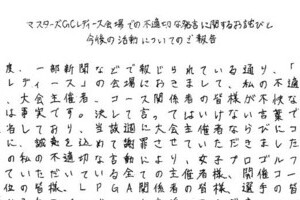 マスターズGCレディース会場での不適切な発言に関するお詫びと
今後の活動についてのご報告
度、一部新聞などで報じられている通り、「
レディース」の会場におきまして、私の不適
、大会主催者、コース関係者の皆様が不快な
は事実です。決して言ってはいけない言葉で
省しており、当該週に大会主催者ならびにコ
に、誠意を込めて謝罪させていただきました
の私の不適切な言動により、女子プロゴルフ
ていただいている全ての主催者様、開催コー
位の皆様、LPGA関係者の皆様、選手の皆